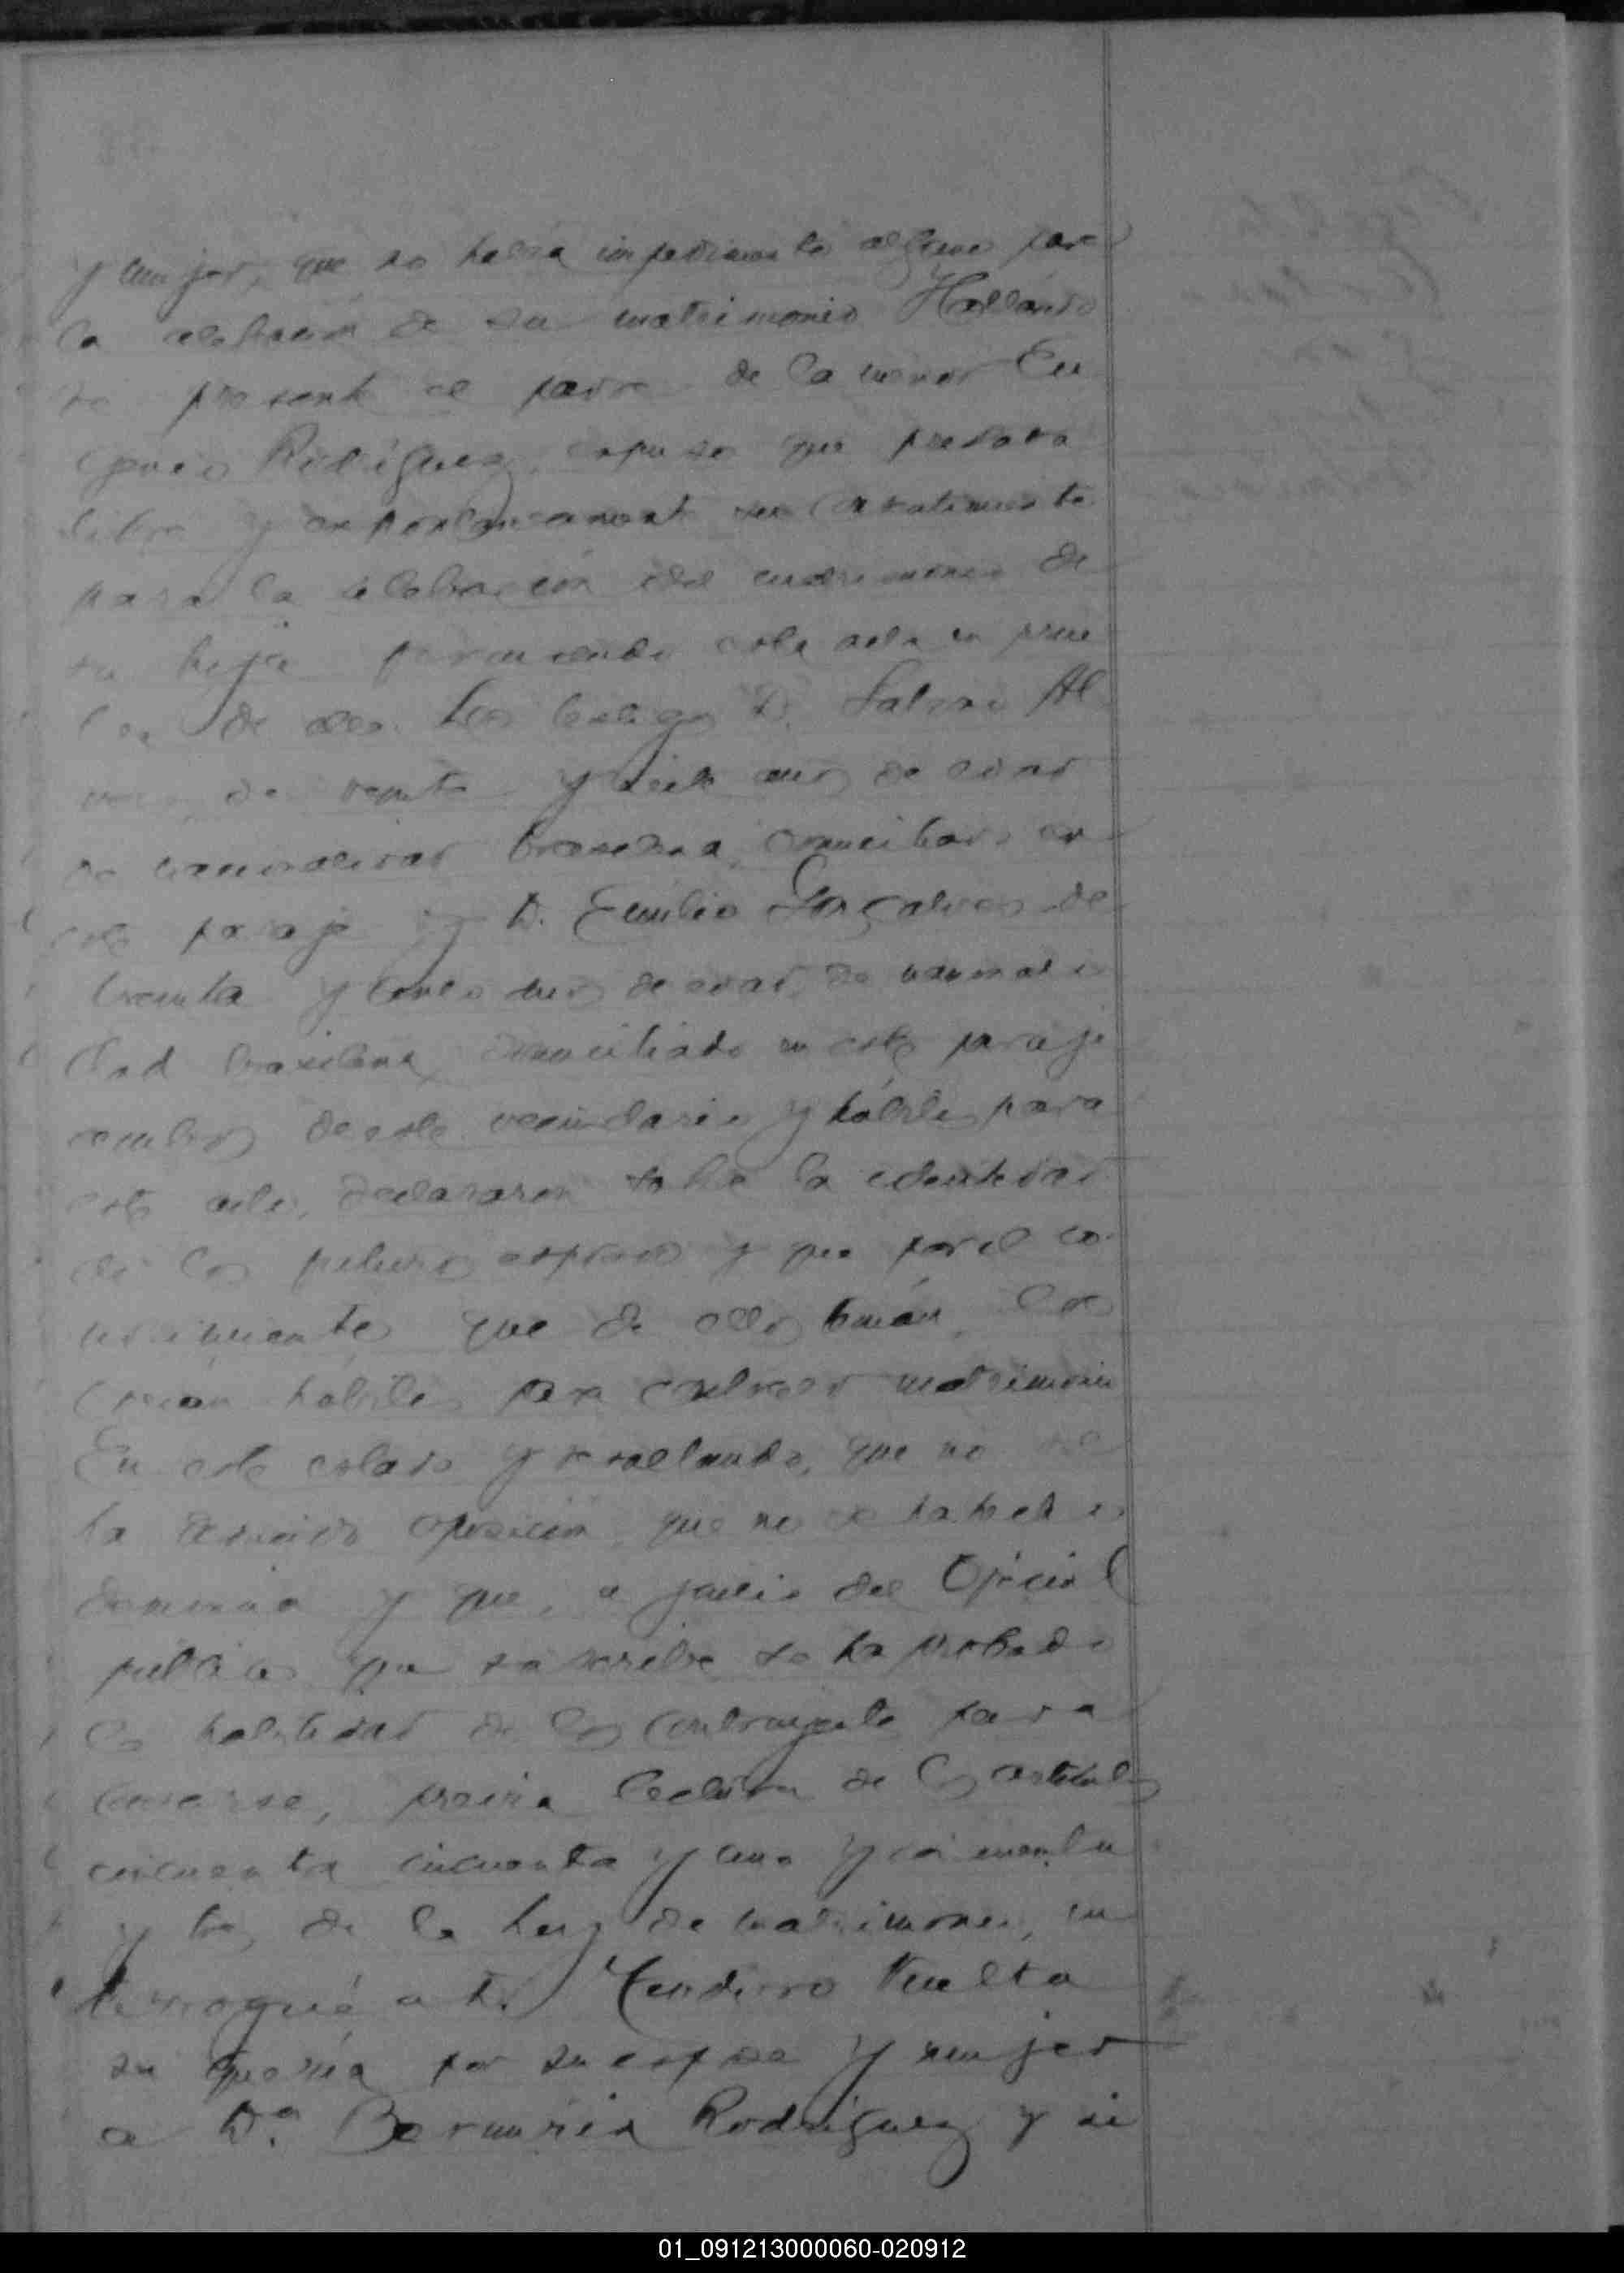 y mujer, que no había impedimento alguno para
la celebración de su matrimonio Hallando
se presente el padre de la menor Eu
genio Rodríguez, expuso que prestaba
libre y espontaneamente su consentimiento
para la celebración del matrimonio de
su hija firmando esta acta en prue
ba de ello. Los testigos D. Al
ves, de veinte y siete años de edad
de nacionalidad brasilera, domiciliado en
este paraje y D. Emilio Gonçalves de
treinta y cinco años de edad, de nacionali
dad brasilera, domiciliado en este paraje
ambos de este vecindario y hábiles para
este acto, declararon sobre la identidad
de los futuros esposos y que por el co
nocimiento que de ellos tenían, los
creían hábiles para contraer matrimonio
En este estado y resultando, que no se
ha deducido oposición, que no se ha hecho
denuncia y que, a juicio del Oficial
público que suscribe se ha probado
la habilidad de los contrayentes para
casarse, previa lectura de los artículos
cincuenta cincuenta y uno y cincuenta
y tres de la Ley de matrimonio, in
terrogué a D. Vuelta
si quería por su esposa y mujer
a D.ª Rodríguez y si
01_091213000060-020912